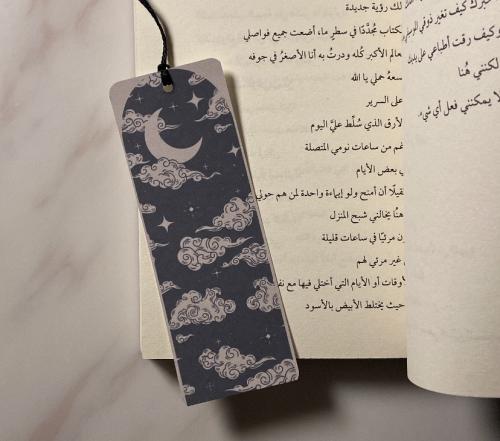 لك رؤية جديدة
كتاب مُجدَّدًا في سطرٍ ما، أضعت جميع فواصلي
عالم الأكبر كُله ودرتُ به أنا الأصغرُ في جوفه
سعهُ حملي يا الله
على السرير
الأرق الذي سُلّط عليَّ اليوم
غم من ساعات نومي المتصلة
ي بعض الأيام
أن أمنح ولو إيماءة واحدة لمن هم حولي
هنُا يخالني شبح المنزل
ن مرئيًا في ساعات قليلة
غير مرئي لهم
أوقات أو الأيام التي أختلي فيها مع
حيث يختلط الأبيض بالأسود
كيف تغير ذوقي
وكيف رقت أطباعي على
لكنني هُنا
لا يمكنني فعل أي شيء.